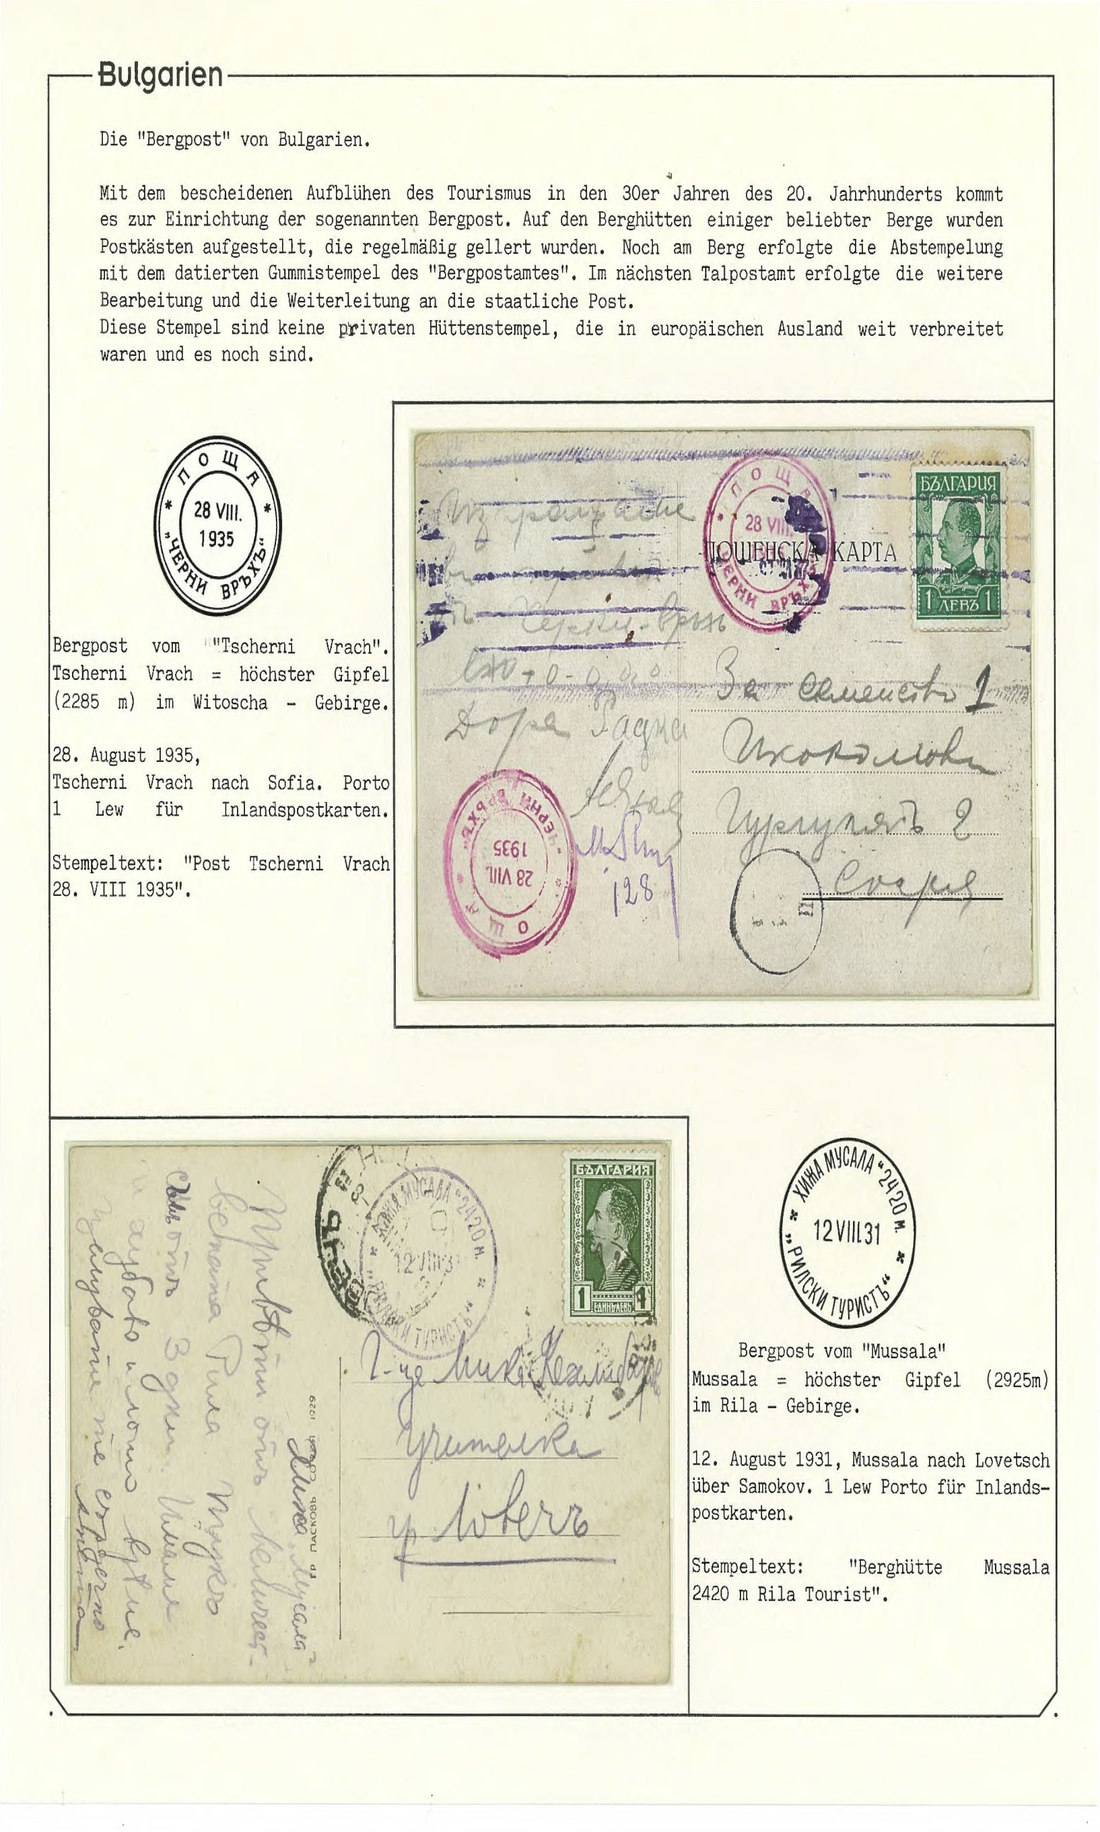 Bulgarien
Die "Bergpost" von Bulgarien.
Mit dem bescheidenen Aufblühen des Tourismus in den 30er Jahren des 20. Jahrhunderts kommt
es zur Einrichtung der sogenannten Bergpost. Auf den Berghütten einiger beliebter Berge wurden
Postkästen aufgestellt, die regelmäßig gellert wurden. Noch am Berg erfolgte die Abstempelung
mit dem datierten Gummistempel des "Bergpostamtes". Im nächsten Talpostamt erfolgte die weitere
Bearbeitung und die Weiterleitung an die staatliche Post.
Diese Stempel sind keine privaten Hüttenstempel, die in europäischen Ausland weit verbreitet
waren und es noch sind.
* ПОЩА *
28 VIII.
1935
„ЧЕРНИ ВРЪХЪ“
Bergpost vom "Tscherni Vrach".
Tscherni Vrach = höchster Gipfel
(2285 m) im Witoscha - Gebirge.
28. August 1935,
Tscherni Vrach nach Sofia. Porto
1 Lew für Inlandspostkarten.
Stempeltext: "Post Tscherni Vrach
28. VIII 1935".
ПОЩА
28 VIII.
ЧЕРНИ ВРЪХЪ
ПОЩЕНСКА КАРТА
БЪЛГАРИЯ
1 ЛЕВЪ 1
Черни-връх
Дора Радка
За семейство
2
София
ПОЩА
28 VIII.
1935
„ЧЕРНИ ВРЪХЪ“
128
Привети отъ величест-
вената Рила.
3 дни. Имаме
хижа „Мусала“
ГР ПАСКОВЪ СОФИЯ 1929
ХИЖА МУСАЛА "2420 м.
12 VIII 31
„РИЛСКИ ТУРИСТЪ“
БЪЛГАРИЯ
1 ЕДИНЪ ЛЕВЪ 1
Г-це Мика
Учителка
гр Ловечъ
* ХИЖА МУСАЛА "2420 м. *
12 VIII.31
„РИЛСКИ ТУРИСТЪ“
Bergpost vom "Mussala"
Mussala = höchster Gipfel (2925m)
im Rila - Gebirge.
12. August 1931, Mussala nach Lovetsch
über Samokov. 1 Lew Porto für Inlands-
postkarten.
Stempeltext: "Berghütte Mussala
2420 m Rila Tourist".